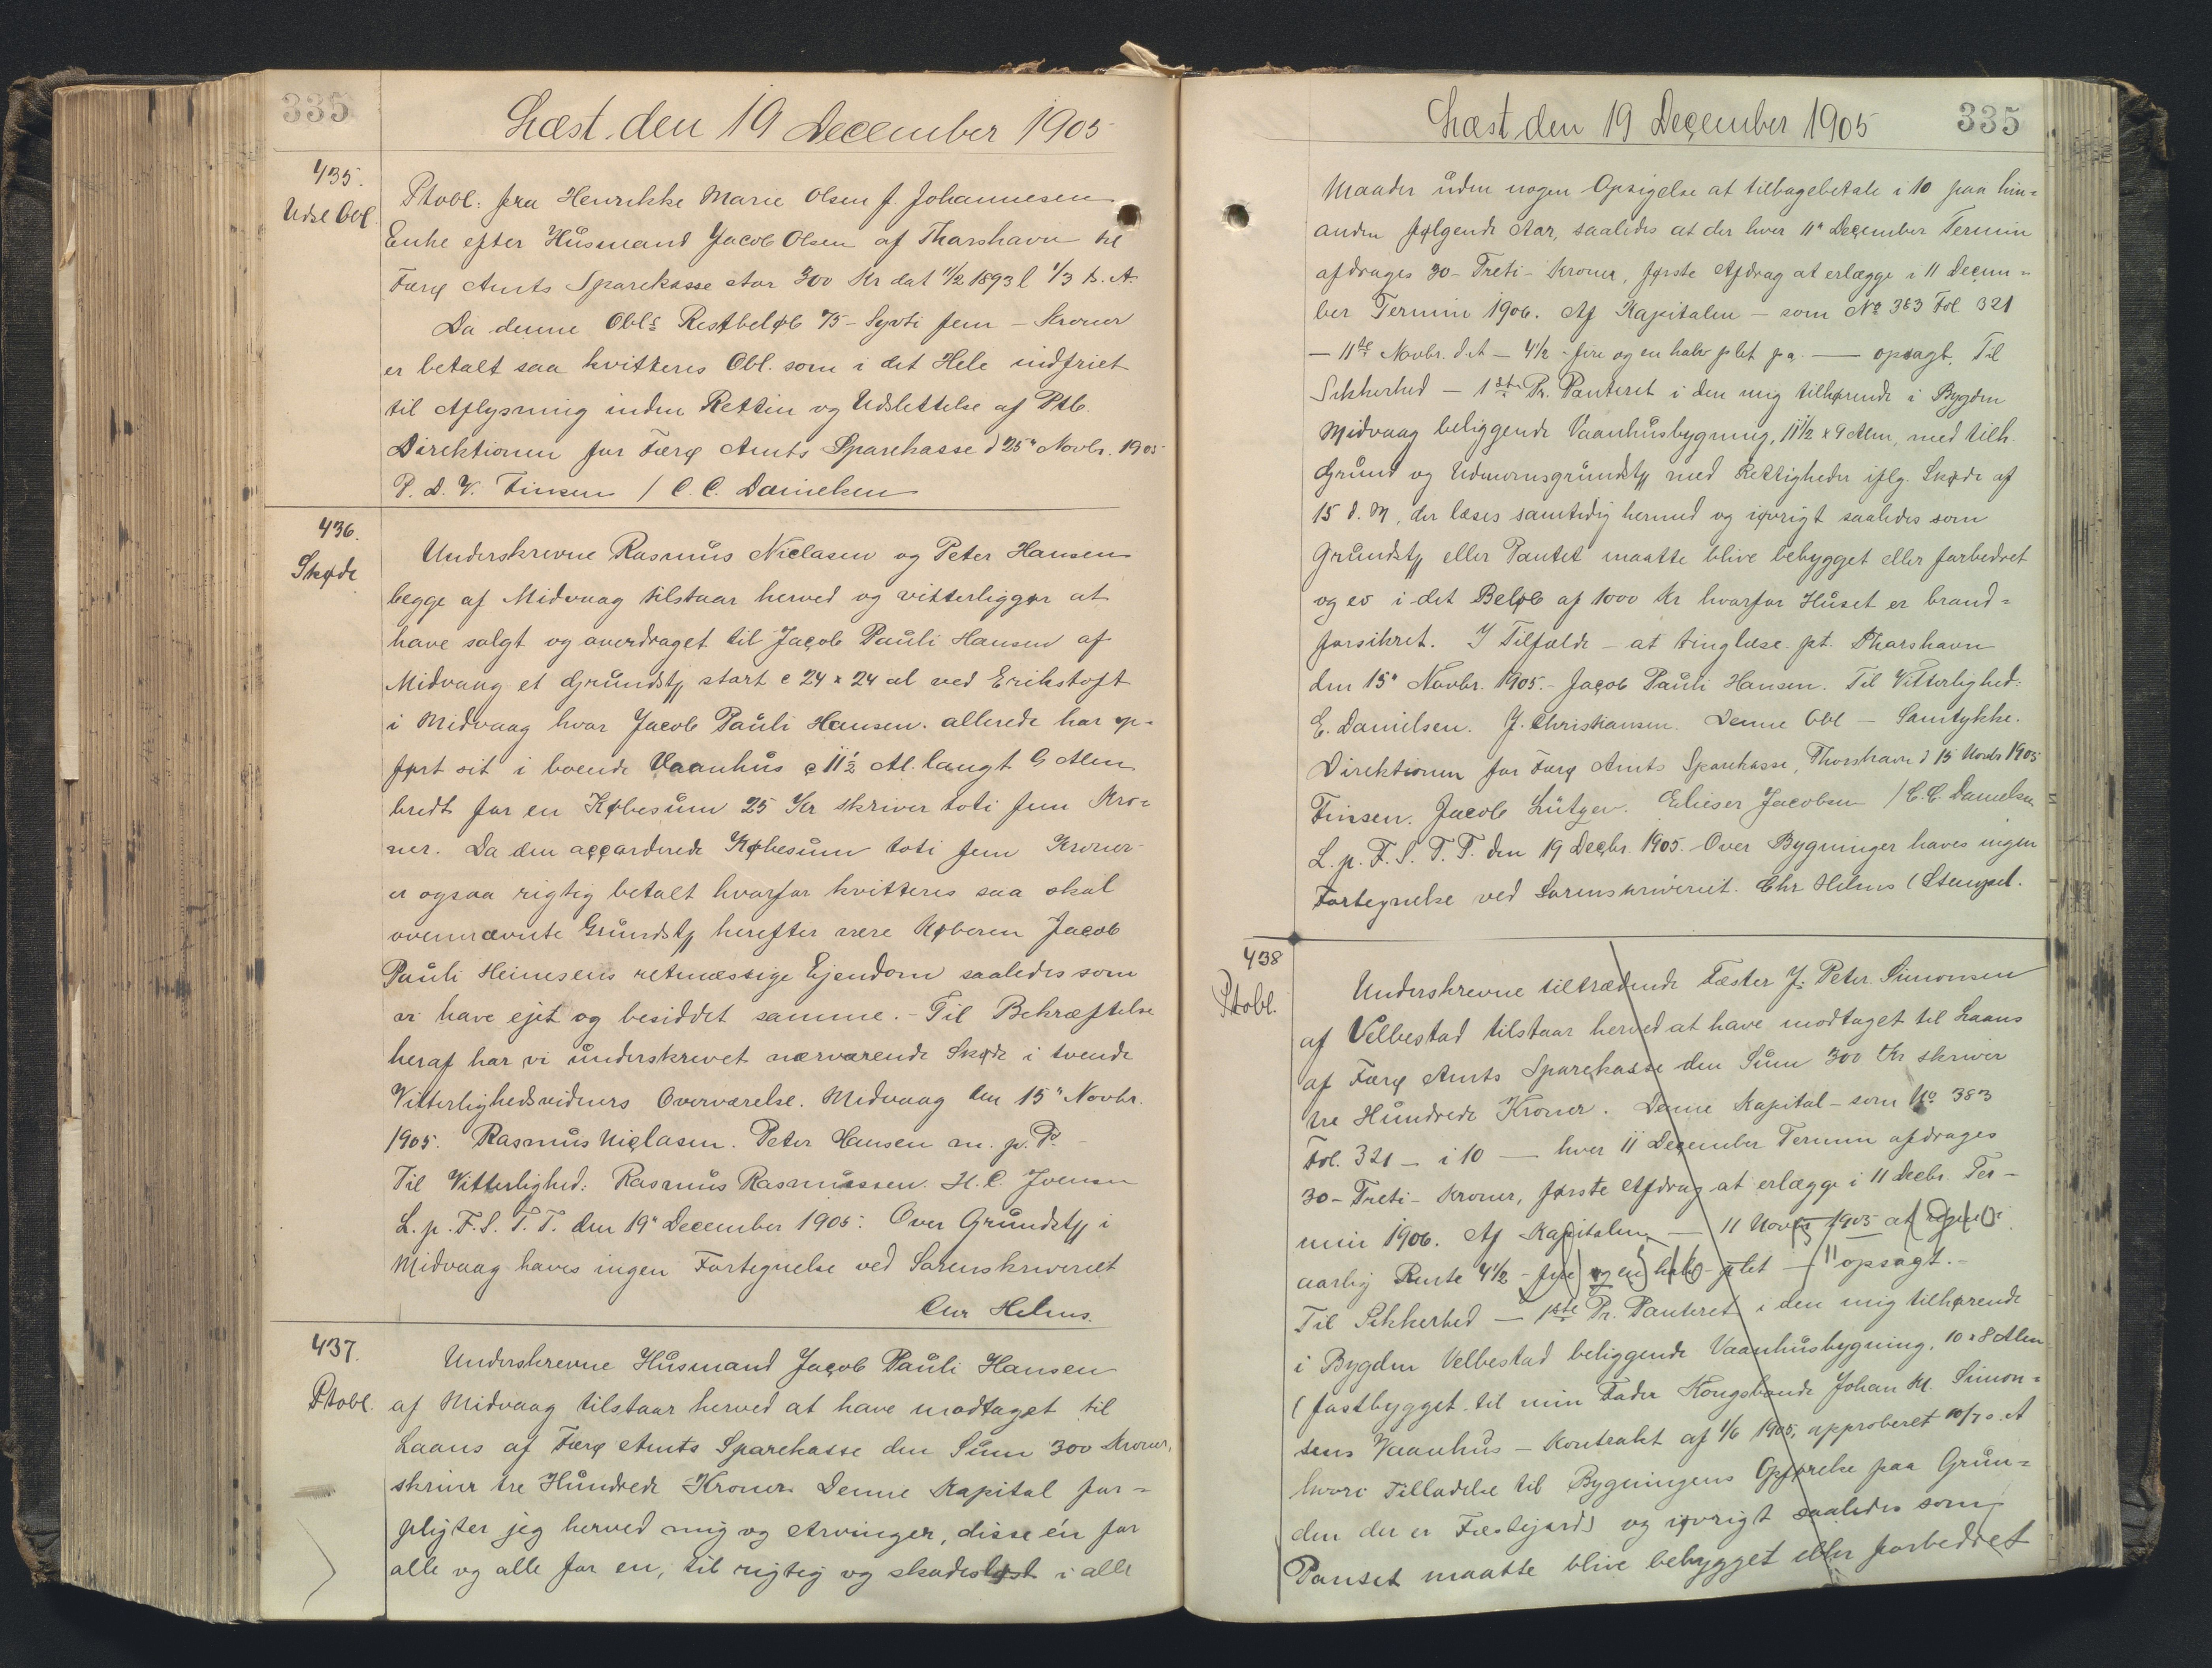 335
Læst den 19 December 1905
435.
Udsl Obl.
Ptobl. fra Henrikke Marie Olsen f. Johannesen
Enke efter Husmand Jacob Olsen af Thorshavn til
Færø Amts Sparekasse stor 300 Kr dat 11/2 1893 l 1/3 s. A.
Da denne Obls Restbeløb 75 - Syvti fem - Kroner
er betalt saa kvitteres Obl. som i det Hele indfriet
til Aflysning inden Retten og Udslettelse af Ptb.
Direktionen for Færø Amts Sparekasse d 25" Novbr. 1905
P. D. V. Finsen / C. C. Danielsen
436.
Skøde
Underskrevne Rasmus Niclasen og Peter Hansen
begge af Midvaag tilstaar herved og vitterliggør at
have solgt og overdraget til Jacob Pauli Hansen af
Midvaag et Grundst stort c 24 x 24 al ved Erikstoft
i Midvaag hvor Jacob Pauli Hansen allerede har op-
ført sit i boende Vaanhus c 11½ Al. langt 9 Alen
bredt for en Købesum 25 Kr skriver toti fem Kro-
ner. Da den accorderede Købesum toti fem Kroner
er ogsaa rigtig betalt hvorfor kvitteres saa skal
ovennævnte Grundst herefter være Køberen Jacob
Pauli Heinesens retmæssige Ejendom saaledes som
vi have ejet og besiddet samme. - Til Bekræftelse
heraf har vi underskrevet nærværende Skøde i tvende
Vitterlighedsvidners Overværelse. Midvaag den 15" Novbr.
1905. Rasmus Niclasen. Peter Hansen m. p. P.
Til Vitterlighed: Rasmus Rasmussen. H. C. Joensen
L. p. F. S. T. T. den 19" December 1905. Over Grundst i
Midvaag haves ingen Fortegnelse ved Sorenskriveriet
Chr Helms.
437.
Ptobl.
Underskrevne Husmand Jacob Pauli Hansen
af Midvaag tilstaar herved at have modtaget til
Laans af Færø Amts Sparekasse den Sum 300 Kroner,
skriver tre Hundrede Kroner. Denne Kapital for-
pligter jeg herved mig og Arvinger, disse én for
alle og alle for en, til rigtig og skadesløst i alle
335
Læst den 19 December 1905
Maader uden nogen Opsigelse at tilbagebetale i 10 paa hin-
anden følgende Aar, saaledes at der hver 11" December Termin
afdrages 30 - Treti - Kroner, første Afdrag at erlægge i 11 Decem-
ber Termin 1906. Af Kapitalen - som No 383 Fol 321
- 11te Novbr. d A - 4½ - fire og en halv - plet pa. - opsagt. Til
Sikkerhed - 1ste Pr. Panteret i den mig tilhørende i Bygden
Midvaag beliggende Vaanhusbygning, 11½ x 9 Alen, med tilh.
Grund og Udmarksgrundst med Rettigheder iflg. Skøde af
15 d. M, der læses samtidig hermed og iøvrigt saaledes som
Grundst eller Pantet maatte blive bebygget eller forbedret
og ev i det Beløb af 1000 Kr hvorfor Huset er brand-
forsikret. I Tilfælde - at tinglæse. pt. Thorshavn
den 15" Novbr. 1905. - Jacob Pauli Hansen. Til Vitterlighed:
E. Danielsen. J. Christiansen. Denne Obl - Samtykke.
Direktionen for Færø Amts Sparekasse, Thorshavn d 15 Novbr 1905
Finsen. Jacob Lützen. Elieser Jacobsen / C. C. Danielsen
L. p. F. S. T. T. den 19 Decbr. 1905. Over Bygninger haves ingen
Fortegnelse ved Sorenskriveriet. Chr Helms (Stempel.
438
Ptobl.
Underskrevne tiltrædende Fæster J. Peter Simonsen
af Velbestad tilstaar herved at have modtaget til Laans
af Færø Amts Sparekasse den Sum 300 Kr skriver
tre Hundrede Kroner. Denne Kapital - som No 383
Fol. 321 - i 10 - hver 11 December Termin afdrages
30 - Treti - Kroner, første Afdrag at erlægge i 11 Decbr. Ter-
min 1906. Af Kapitalen - 11 Novbr 1905 at
aarlig Rente 4½ - fire og en halv - plet - opsagt. -
Til Sikkerhed - 1ste Pr. Panteret i den mig tilhørende
i Bygden Velbestad beliggende Vaanhusbygning, 10 x 8 Alen
(fastbygget til min Fader Kongsbonde Johan M. Simon-
sens Vaanhus - Kontrakt af 1/6 1905, approberet 10/7 s. A
hvori Tilladelse til Bygningens Opførelse paa Grun-
den der er Fæstejord) og iøvrigt saaledes som
Pantet maatte blive bebygget eller forbedret